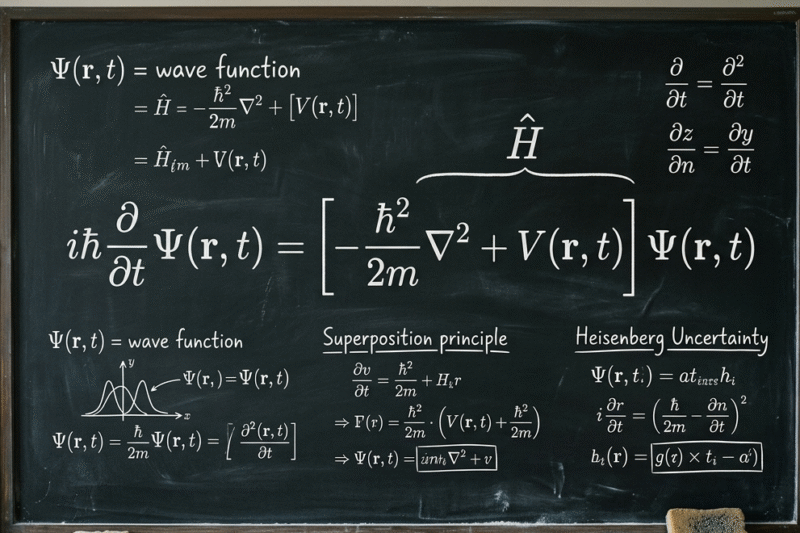 Ψ(r, t) = wave function
= Ĥ = −ℏ²/2m ∇² + [V(r, t)]
= Ĥ_im + V(r, t)
∂/∂t = ∂²/∂t
∂z/∂n = ∂y/∂t
Ĥ
iℏ ∂/∂t Ψ(r, t) = [−ℏ²/2m ∇² + V(r, t)] Ψ(r, t)
Ψ(r, t) = wave function
y
Ψ(r,) = Ψ(r, t)
x
Ψ(r, t) = ℏ/2m Ψ(r, t) = [∂²(r, t)/∂t]
Superposition principle
∂v/∂t = ℏ²/2m + H r
⇒ F(r) = ℏ²/2m · (V(r, t) + ℏ²/2m)
⇒ Ψ(r, t) = ∇² + v
Heisenberg Uncertainty
Ψ(r, t.) = at h_i
i ∂r/∂t = (ℏ/2m − ∂n/∂t)²
(r) = g(τ) × t_i − a